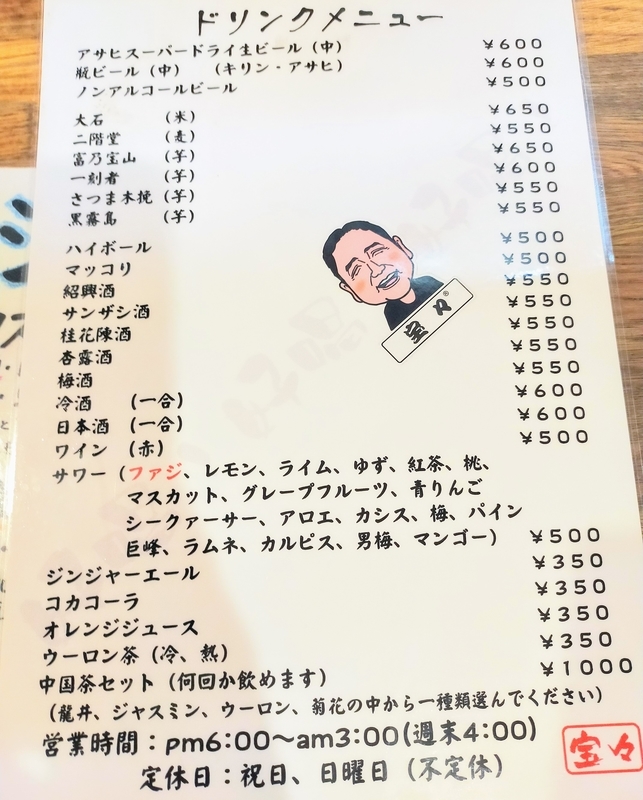 ドリンクメニュー
アサヒスーパードライ生ビール（中） ¥600
瓶ビール（中）（キリン・アサヒ） ¥600
ノンアルコールビール ¥500
大石（米） ¥650
二階堂（麦） ¥550
富乃宝山（芋） ¥650
一刻者（芋） ¥600
さつま木挽（芋） ¥550
黒霧島（芋） ¥550
ハイボール ¥500
マッコリ ¥500
紹興酒 ¥550
サンザシ酒 ¥550
桂花陳酒 ¥550
杏露酒 ¥550
梅酒 ¥550
冷酒（一合） ¥600
日本酒（一合） ¥600
ワイン（赤） ¥500
サワー（ファジ、レモン、ライム、ゆず、紅茶、桃、
マスカット、グレープフルーツ、青りんご
シークァーサー、アロエ、カシス、梅、パイン
巨峰、ラムネ、カルピス、男梅、マンゴー） ¥500
ジンジャーエール ¥350
コカコーラ ¥350
オレンジジュース ¥350
ウーロン茶（冷、熱） ¥350
中国茶セット（何回か飲めます） ¥1000
（龍井、ジャスミン、ウーロン、菊花の中から一種類選んでください）
営業時間：pm6:00〜am3:00(週末4:00)
定休日：祝日、日曜日（不定休）
宝々
宝々